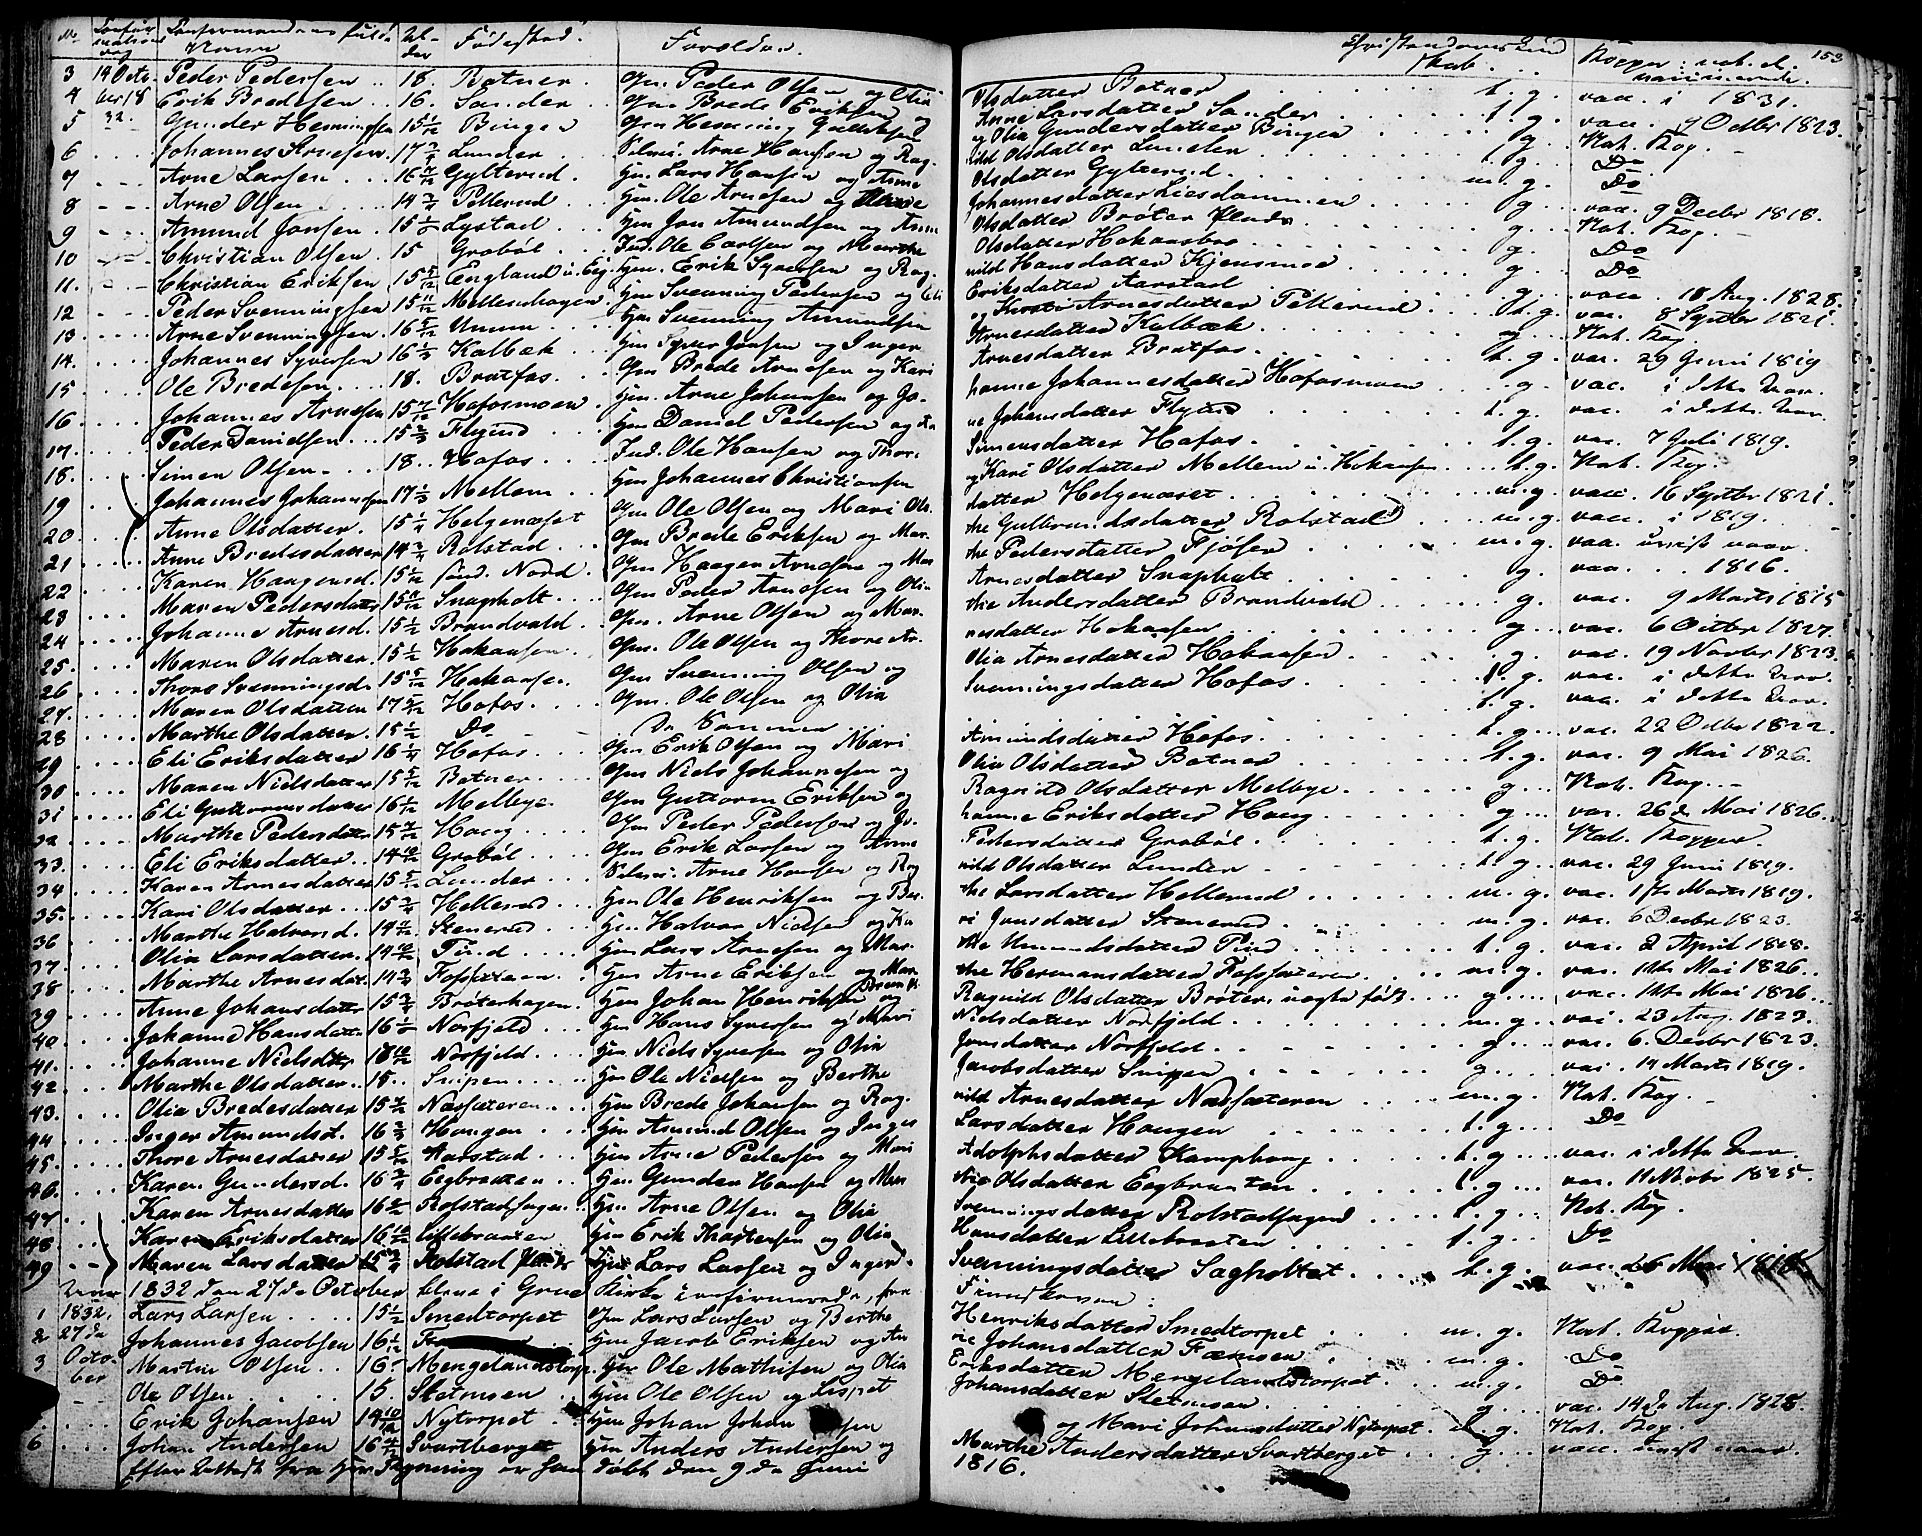 No Confirmations dag Confirmandernes fulde Navne Alder Fødested. Forældre. Christendomskundskab... Kopper: nat. el. vaccinerede. 153
3 14 Octo. Peder Pedersen .. 18. Botner. Gm. Peder Olsen og Olia Olsdatter Botner t. g. vac. i 1831.
4 ber 18 Erik Bredesen .. 16. Sander. Gm. Brede Eriksen og Anne Larsdatter Sander t g. vac. 7 Octbr 1823.
5 32. Gunder Hemmingsen 15 1/12 Bingen Gm Hemming Gulliksen og Olia Gundersdatter Bingen g. Nat. Kop.
6 Johannes Arnesen. 17 3/4 Lunder Arne Hansen og Ragnild Olsdatter Lunden t. g. Do
7 Arne Larsen 16 Gylterud. Hm. Lars Hansen og Anne Olsdatter Gylterud. m. g. Do
8 Arne Olsen 14 3/4 Petterud Hm. Ole Arnesen og Johannesdatter Liesdammen g. vac. 9 Decbr 1818.
9 Amund Jonsen. 15 Lystad. Hm Jon Amundsen og Anne Olsdatter Brøter Plads g. Nat. Kop.
10 Christian Olsen. 15 Grøbøl. Ind. Ole Carlsen og Marthe Olsdatter Hokaasbro g. Do
11. Christian Eriksen 15 5/12 England Hm. Erik Syversen og Ragnild Hansdatter Kjensmoe g. Do
12 Peder Svenningsen 15 11/12 Mellemhagen. Hm Svenning Pedersen og Eli Eriksdatter Aarstad g. vac. 18 Aug. 1828.
13. Arne Svenningsen. 16 Hm Svenning Amundsen og Kirsti Arnesdatter Petterud t. g. vac. 8 Septbr 1821.
14. Johannes Syversen 16 1/4 Kalbæk Hm Syver Jonsen og Inger Arnesdatter Kalbæk g. Nat. Kop.
15 Ole Bredesen. 18. Bratfos. Gm Brede Arnesen og Kari Arnesdatter Bratfos. t. g. vac. 29 Juni 1819
16. Johannes Arnesen 15 7/12 Hofosmoen Hm. Arne Johansen og Johanne Johannesdatter Hofosmoen g. vac. i dette Aar.
17. Peder Danielsen 15 Flyind Hm Daniel Pedersen og Johansdatter t. g. vac. i dette Aar.
18. Simen Olsen. 18. Hofos. Ind. Ole Hansen og Thore Simensdatter Hofos t. g. vac. 7 Juli 1819.
19 Johannes Johannesen 17 1/3 Mellem Hm Johannes Christiansen og Kari Olsdatter Mellem t. g. Nat. Kop.
20. Anne Olsdatter. 15 1/4 Helgenæset Gm Ole Olsen og Mari Olsdatter Helgenæset m. g. vac. 16 Septbr 1821.
21 Anne Bredesdatter 14 3/4 Rolstad. Gm Brede Eriksen og Marthe Gulbrandsdatter Rolstad m. g. vac. i 1819.
22 Karen Haagensd. 15 1/12 Nord Gm Haagen Arnesen og Marthe Pedersdatter Fjøser m. g. vac. unest aar.
23 Maren Pedersdatter 15 Snapholt Gm Peder Arnesen og Olia Arnesdatter Snapholt g. vac. 1816.
24 Johanne Arnesd. 15 1/2 Brandvold. Gm. Arne Olsen og Marthe Andersdatter Brandvold g. vac. 9 Marts 1815
25. Maren Olsdatter. 15 1/2 Hokaasen Gm. Ole Olsen og Thore Arnesdatter Hokaasen g. vac. 6 Octbr 1827.
26 Thore Svenningsd. 15 5/12 Hokaasen. Gm Svenning Olsen og Olia Arnesdatter Hokaasen g. vac. 19 Novbr 1823.
27. Maren Olsdatter 17 5/12 Hofos. Gm. Ole Olsen og Olia Svenningsdatter Hofos. t. g. vac. i dette Aar.
28 Marthe Olsdatter. 15 1/2 Do De samme t. g. vac. i dette Aar.
29 Eli Eriksdatter 16 1/4 Hofos. Gm Erik Olsen og Mari Amundsdatter Hofos. t. g. vac. 22 Octbr 1822.
30 Maren Nielsdatter 15 5/12 Botner. Gm Niels Johannesen og Olia Olsdatter Botner t. g. vac. 9 Mai 1826.
31 Eli Guttormsdatter 16 1/2 Melbye. Gm Guttorm Eriksen og Ragnild Olsdatter Melbye g. Nat. Kop.
32 Marthe Pedersdatter 15 Haug. Gm Peder Pedersen og Johanne Eriksdatter Haug g. vac. 26 de Mai 1826.
33. Eli Eriksdatter. 14 10/12 Grøbøl Gm Erik Larsen og Anne Pedersdatter Grøbøl. t. g. Nat. Kopper.
34 Karen Arnesdatter 15 5/12 Lunder Arne Hansen og Ragnild Olsdatter Lunden t g. vac. 29 Juni 1819.
35. Kari Olsdatter. 15 3/4 Hellerud Hm Ole Henriksen og Berthe Larsdatter Hellerud m. g. vac. Marts 1819.
36 Marthe Halvorsd. 14 11/12 Stenerud. Hm. Halvor Nielsen og Kari Jonsdatter Stenerud. m. g. vac. 6 Decbr 1823.
37. Olia Larsdatter. 14 10/12 Tind Hm Lars Arnesen og Marthe Amundsdatter Tind t. g. vac. 2 April 1828.
38 Marthe Arnesdat. 14 3/4 Fossæteren Hm Arne Eriksen og Marthe Hermansdatter Fossæteren m. g. vac. 11te Mai 1826.
39 Anne Johansdatter 15 3/4 Brøterhagen Hm Johan Henriksen og Ragnild Olsdatter Brøter. uægte født g. vac. 11te Mai 1826.
40. Johanne Hansdatter 16 1/12 Norfjeld Hm Hans Syversen og Mari Nielsdatter Norfjeld m. g. vac. 23 Aug. 1823.
41. Johanne Nielsdatter 18 10/12 Norfjeld Hm Niels Syversen og Olia Jonsdatter Norfjeld. g. vac. 6. Decbr 1823.
42 Marthe Olsdatter. 15. Snipen Hm Ole Nielsen og Berthe Jacobsdatter Snipen g. vac. 14 Marts 1819.
43. Olia Bredesdatter 15 Næssæteren Hm Brede Johansen og Ragnild Arnesdatter Næssæteren m. g. Nat. Kop.
44 Inger Amundsd. 16 3/4 Haugen Hm Amund Olsen og Inger Larsdatter Haugen t. g. Do
45. Thore Arnesdatter 15 Aarstad. Hm Arne Pedersen og Mari Adolphsdatter Kamphaug t. g. vac. i dette Aar.
46. Karen Gundersd. 16 3/4 Eegbraaten Hm. Gunder Hansen og Marie Olsdatter Eegbraaten t. g. vac. 11 Novbr 1825.
47 Karen Arnesdatter 16 Rolstadsagen Hm. Arne Olsen og Olia Svenningsdatter Rolstadsagen t. g. Nat. Kop.
48. Karen Eriksdatter 16 10/12 Lillebraaten Hm Erik Thostensen og Olia Hansdatter Lillebraaten t. g. Do
49 Maren Larsdatter 15 3/4 Rolstad Hm Lars Larsen og Inger Svenningsdatter Sagholtet t. g. vac. 26 Mai 1818
Aar 1832 den 27 de October blive i Grue Kirke confirmerede, fra Finnskoven:
1 1832. Lars Larsen 15 1/2 Smedtorpet Gm Lars Larsen og Berthe Henriksdatter Smedtorpet m. g. Nat. Kopper.
2 27 de Johannes Jacobsen 16 1/12 Hm Jacob Eriksen og Anne Johansdatter Fæmsen m. g. Do
3 October Martin Olsen. 16 Mengelandstorp. Hm Ole Mathisen og Olia Eriksdatter Mengelandstorpet m. g. Do
Ole Olsen 15. Sletmoen Hm Ole Olsen og Lispet Johansdatter Sletmoen. g. vac. 14 de Aug. 1828.
Erik Johansen 14 10/12 Nytorpet Hm Johan Johansen og Mari Johansdatter Nytorpet. g. Nat. Kop.
6 Johan Andersen 16 Svartberget Hm Anders Andersen og Marthe Andersdatter Svartberget g. vac. unest aar.
Efter Attest fra Hm er han døbt den 9 de Juni 1816.